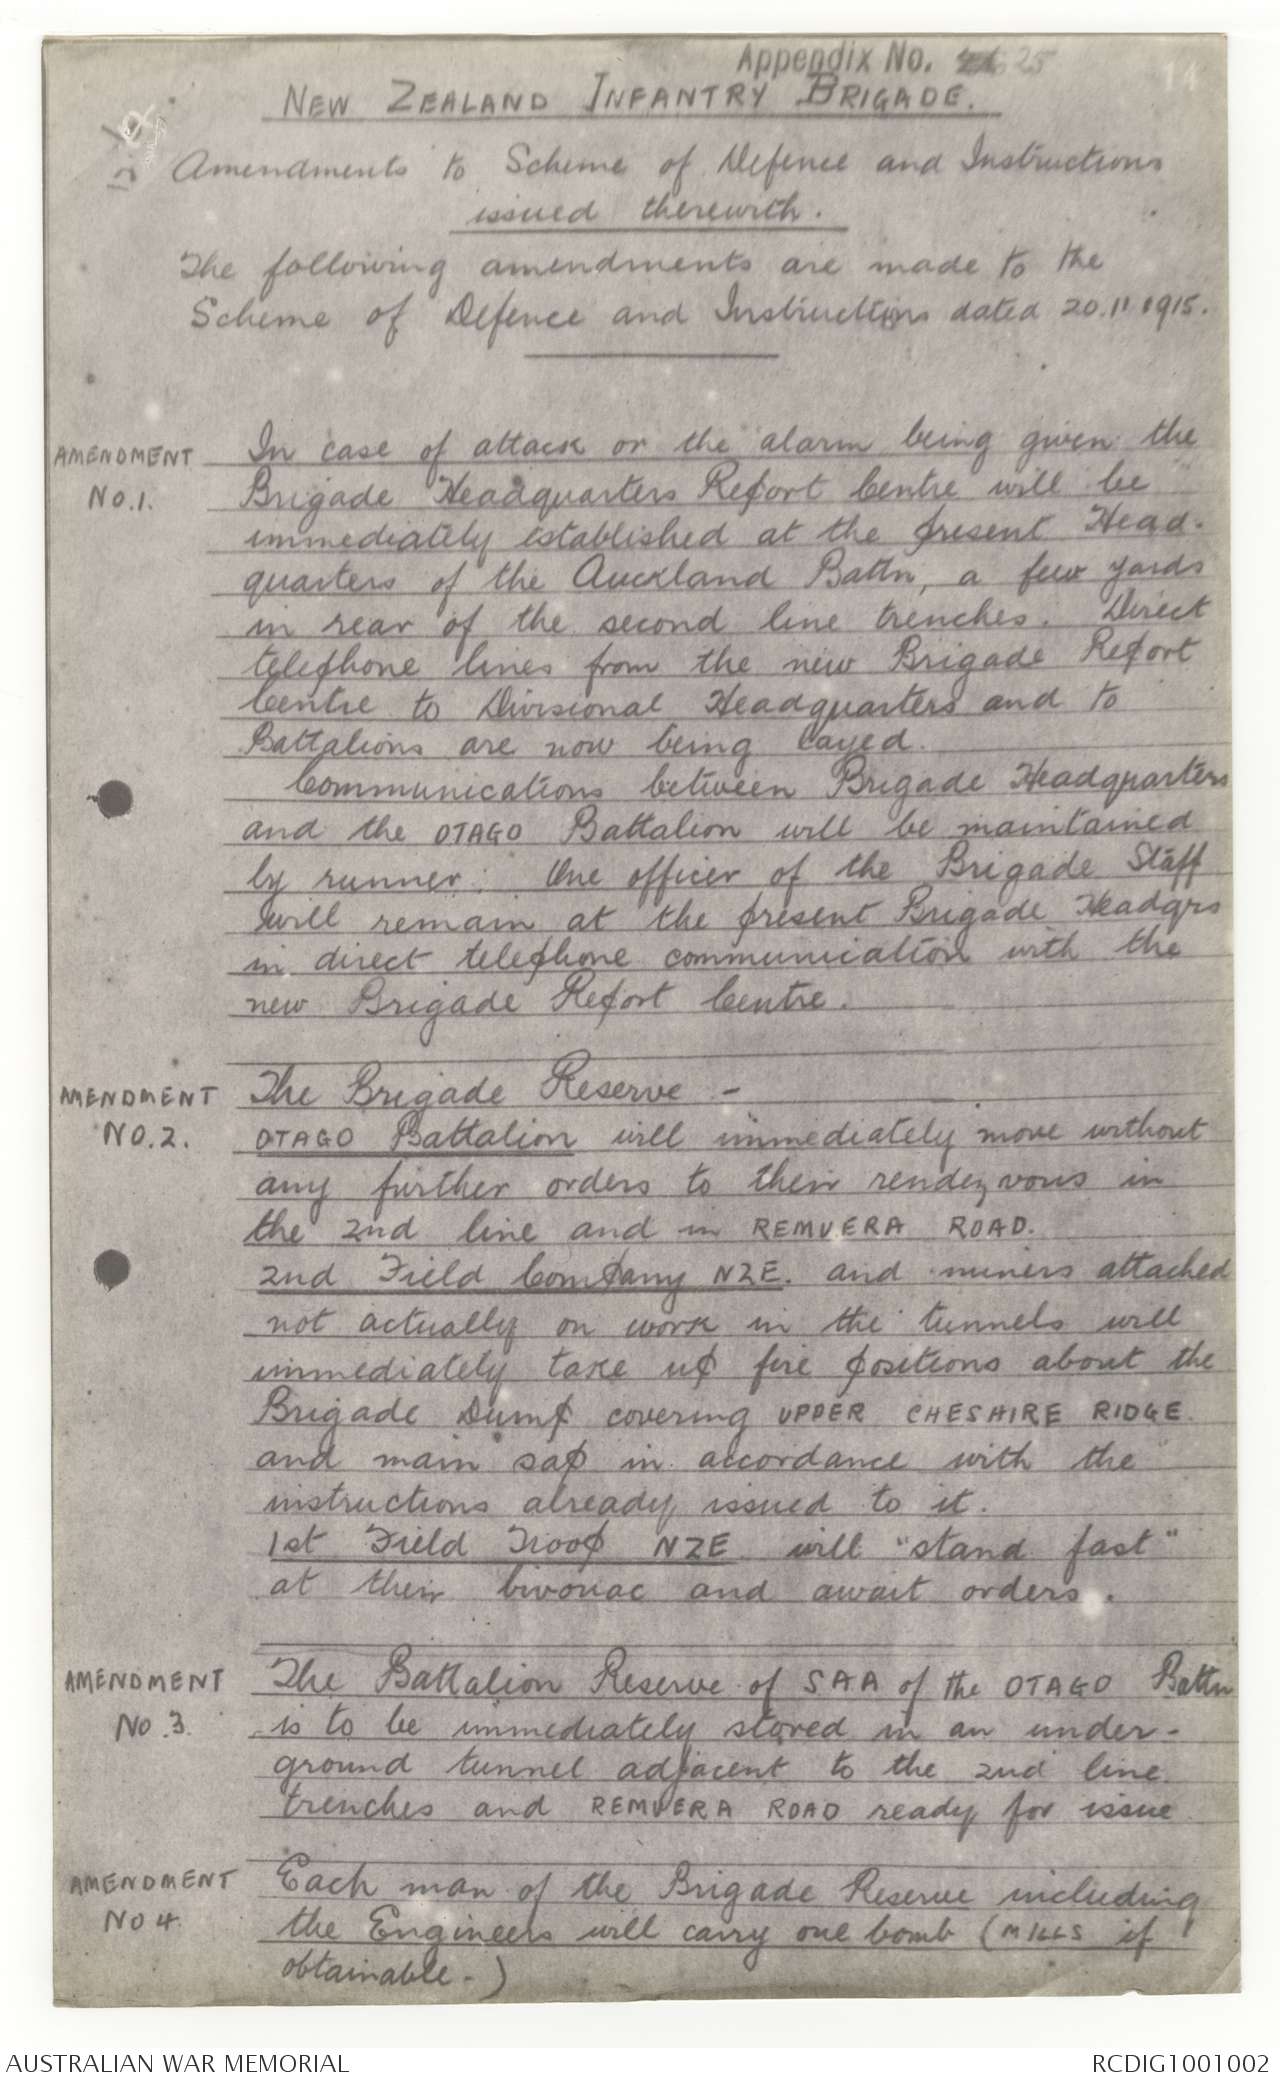 Appendix No. 25
14
NEW ZEALAND INFANTRY BRIGADE.
Amendments to Scheme of Defence and Instructions
issued therewith.
The following amendments are made to the
Scheme of Defence and Instructions dated 20.11.1915.
AMENDMENT
NO.1.
In case of attack or the alarm being given the
Brigade Headquarters Report Centre will be
immediately established at the present Head-
quarters of the Auckland Battn, a few yards
in rear of the second line trenches. Direct
telephone lines from the new Brigade Report
Centre to Divisional Headquarters and to
Battalions are now being layed.
Communications between Brigade Headquarters
and the OTAGO Battalion will be maintained
by runner. One officer of the Brigade Staff
will remain at the present Brigade Headqrs
in direct telephone communication with the
new Brigade Report Centre.
AMENDMENT
NO.2.
The Brigade Reserve -
OTAGO Battalion will immediately move without
any further orders to their rendezvous in
the 2nd line and in REMUERA ROAD.
2nd Field Company NZE. and miners attached
not actually on work in the tunnels will
immediately take up fire positions about the
Brigade Dump covering UPPER CHESHIRE RIDGE
and main sap in accordance with the
instructions already issued to it.
1st Field Troop NZE will "stand fast"
at their bivouac and await orders.
AMENDMENT
NO 3.
The Battalion Reserve of SAA of the OTAGO Battn
is to be immediately stored in an under-
ground tunnel adjacent to the 2nd line
trenches and REMUERA ROAD ready for issue
AMENDMENT
NO 4.
Each man of the Brigade Reserve including
the Engineers will carry one bomb (MILLS if
obtainable.)
AUSTRALIAN WAR MEMORIAL
RCDIG1001002